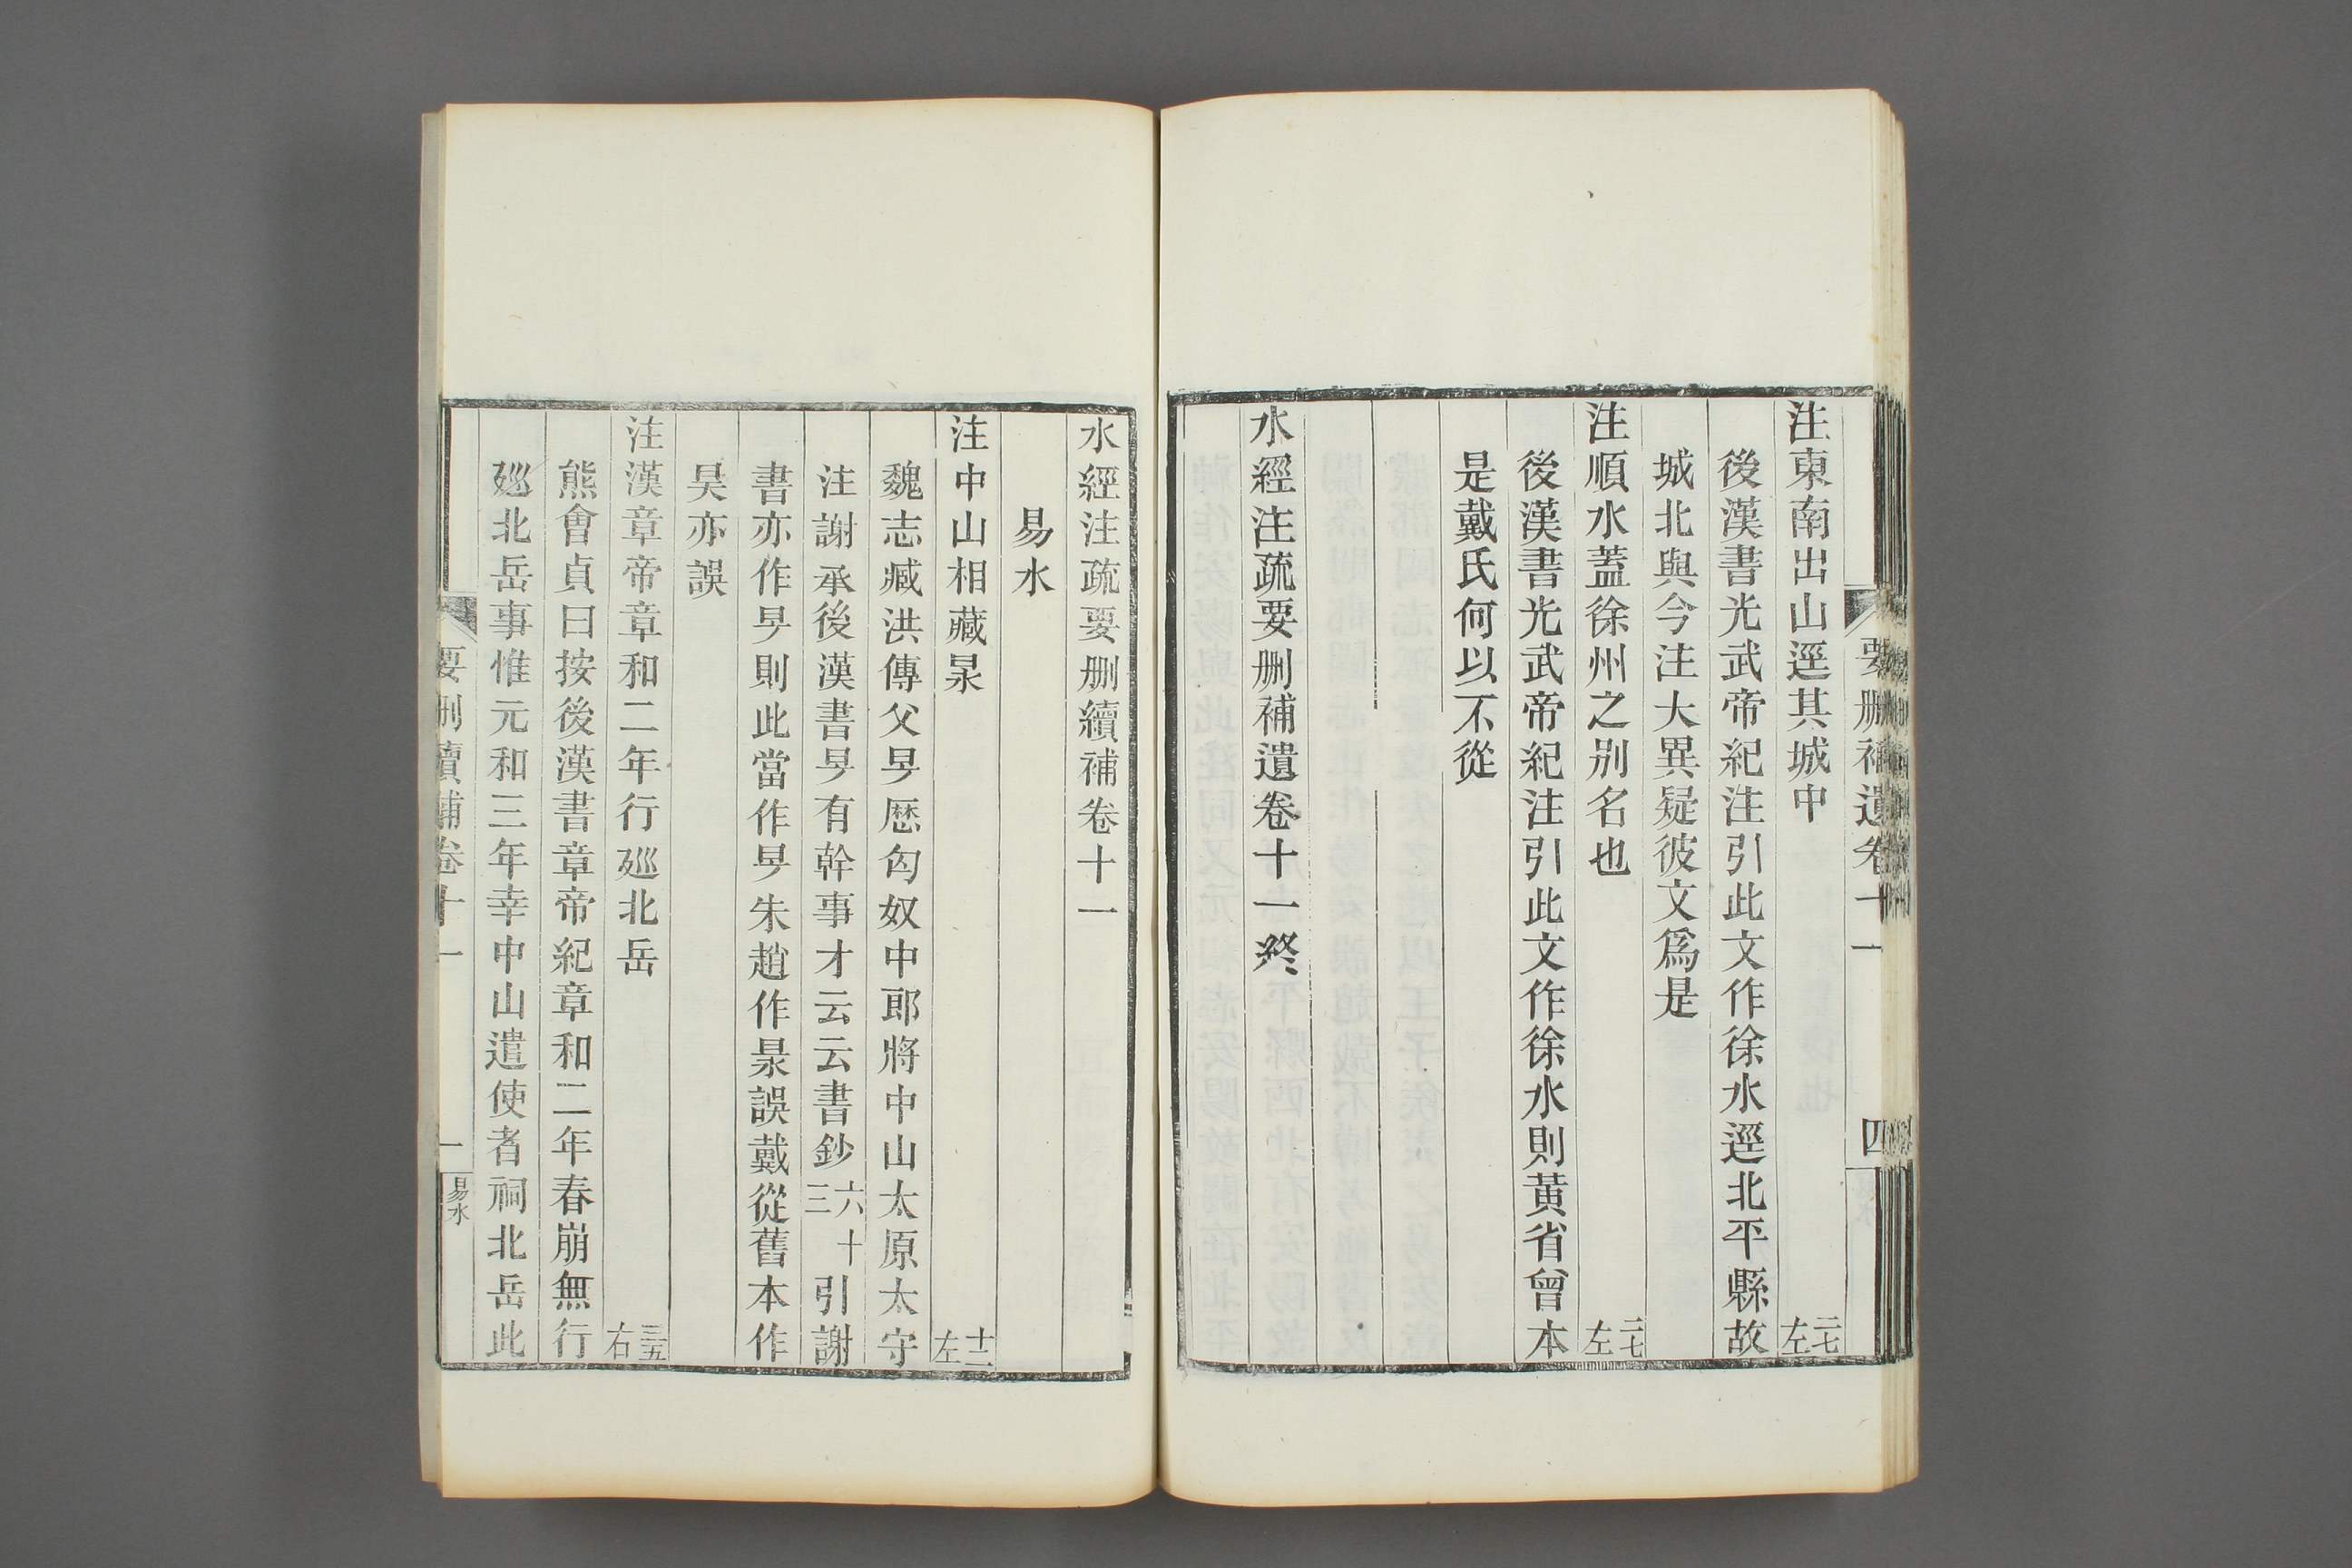 要删補遺卷十一
四
注東南出山逕其城中 二七左
後漢書光武帝紀注引此文作徐水逕北平縣故
城北與今注大異疑彼文爲是
注順水蓋徐州之别名也 二七左
後漢書光武帝紀注引此文作徐水則黃省曾本
是戴氏何以不從
水經注疏要删補遺卷十一終
水經注疏要删續補卷十一
易水
注中山相藏㫤 十二左
魏志臧洪傳父旻歷匈奴中郎將中山太原太守
注謝承後漢書旻有幹事才云云書鈔六十三引謝
書亦作旻則此當作旻朱趙作㫤誤戴從舊本作
昊亦誤
注漢章帝章和二年行廵北岳 三五右
熊會貞曰按後漢書章帝紀章和二年春崩無行
廵北岳事惟元和三年幸中山遣使者祠北岳此
要删續補卷十一
一
易水